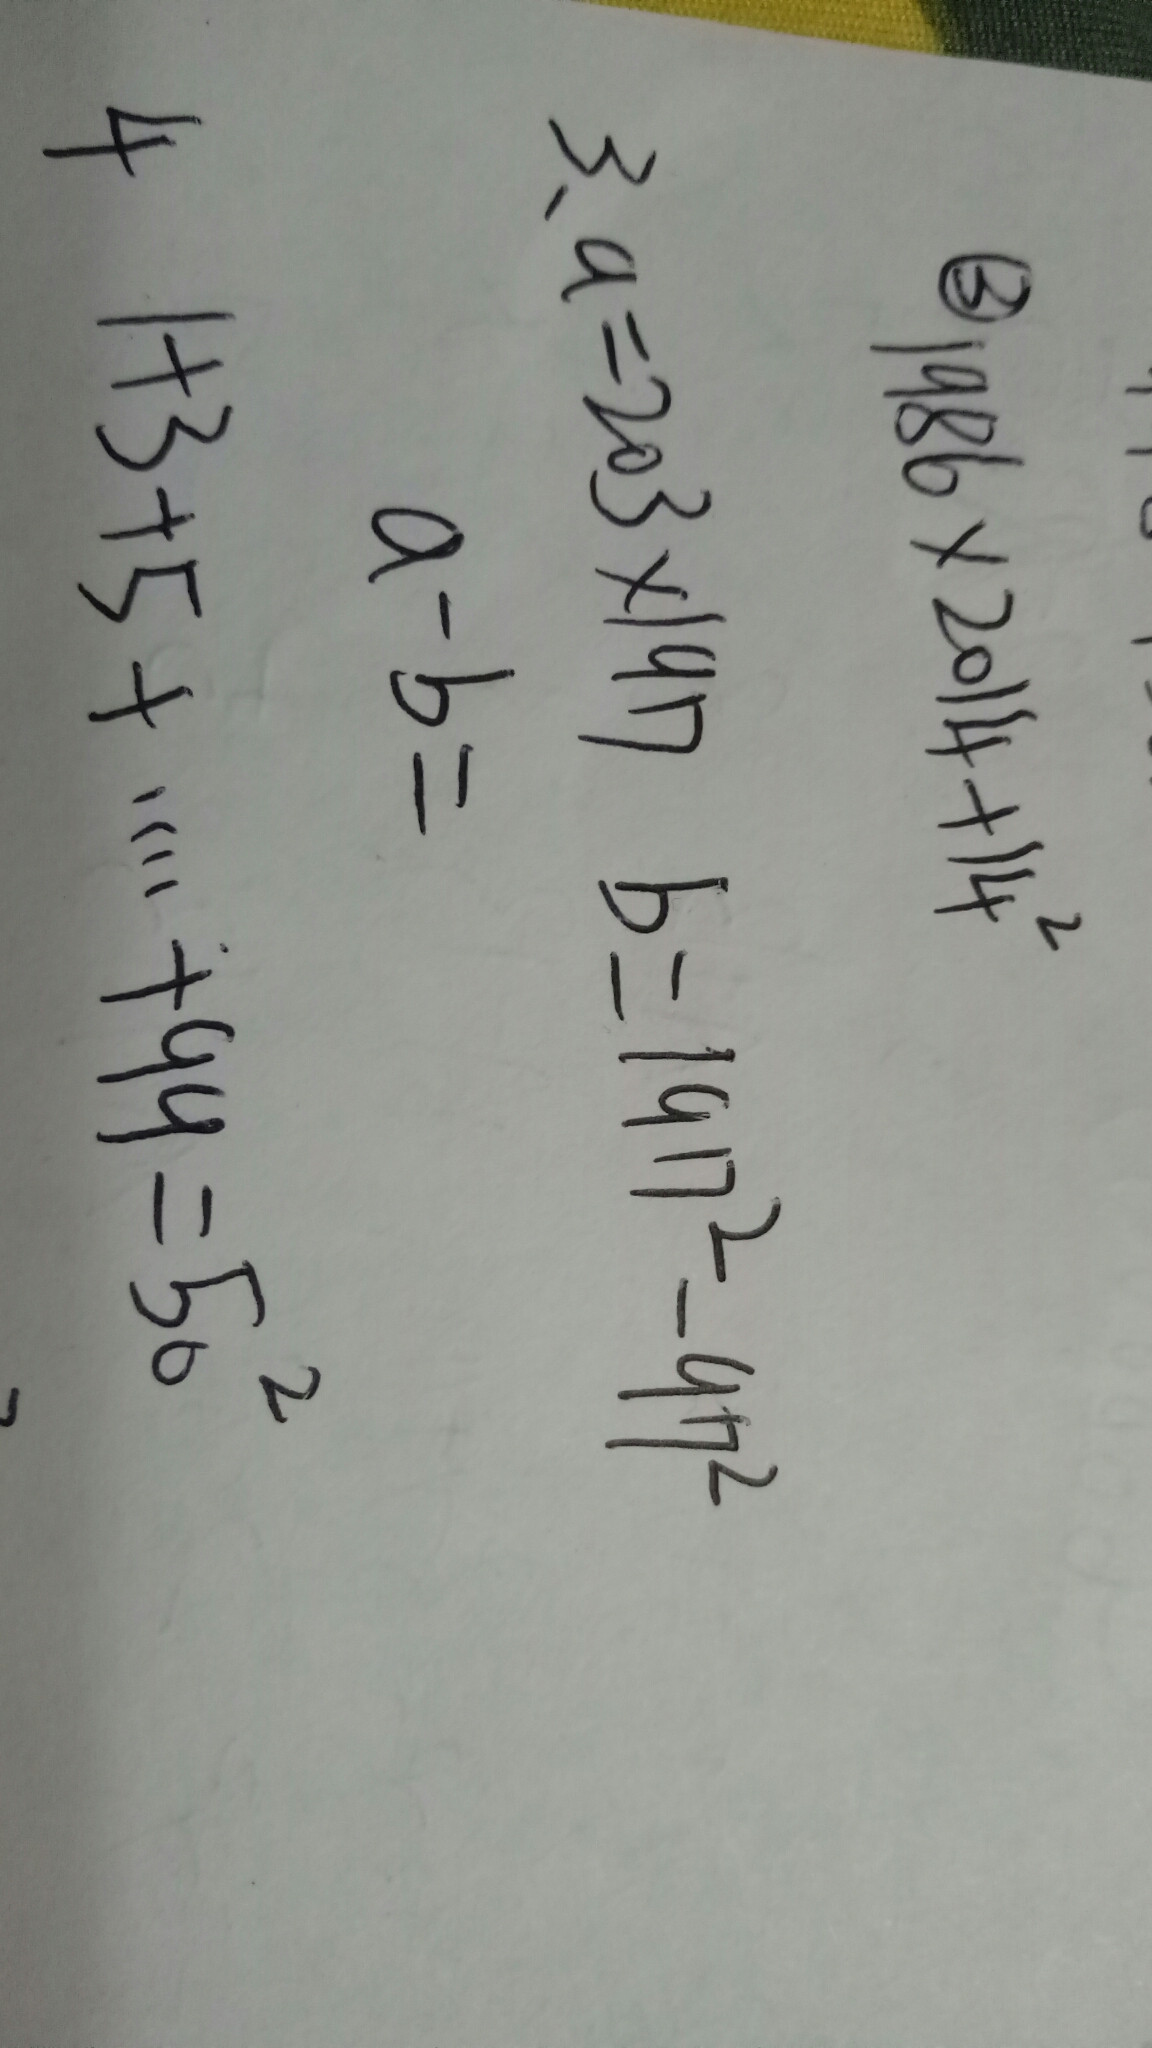 ③ 1986×2014+14²
3、a=203×197 b=197²-97²
a-b=
4 1+3+5+……+99=50²